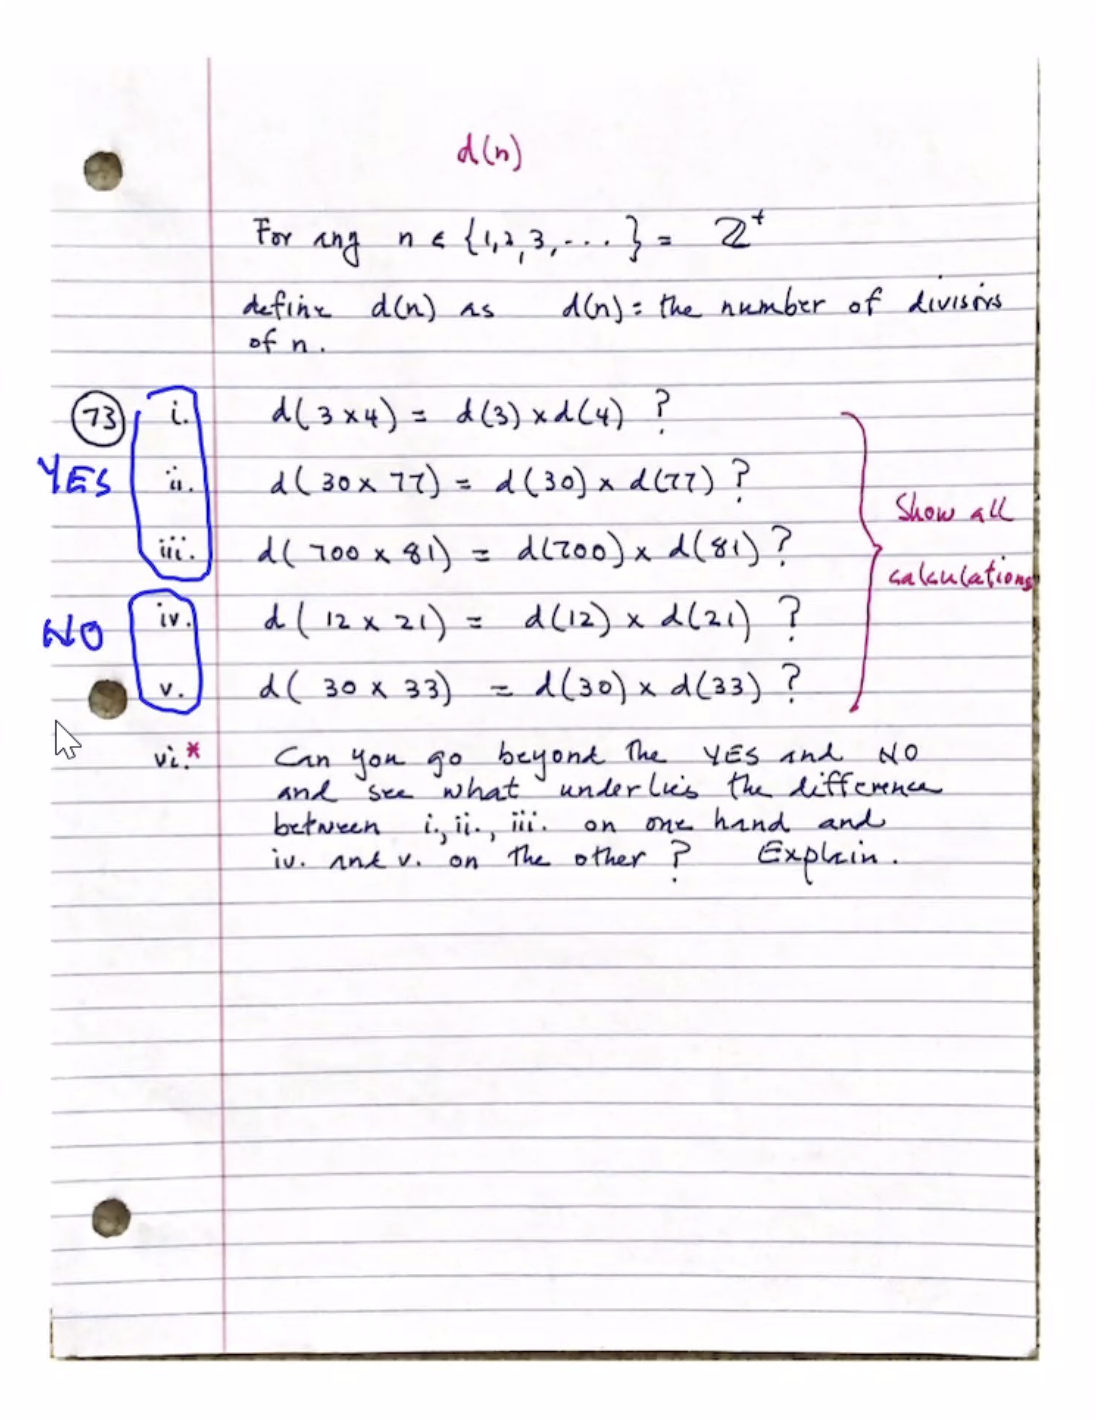 d(n)
For any n ∈ {1,2,3,...} = ℤ⁺
define d(n) as d(n) = the number of divisors
of n.
73 i. d(3 × 4) = d(3) × d(4) ?
YES ii. d(30 × 77) = d(30) × d(77) ?
iii. d(700 × 81) = d(700) × d(81) ?
Show all
calculations
iv. d(12 × 21) = d(12) × d(21) ?
NO
v. d(30 × 33) = d(30) × d(33) ?
vi.* Can you go beyond the YES and NO
and see what underlies the difference
between i., ii., iii. on one hand and
iv. and v. on the other ? Explain.